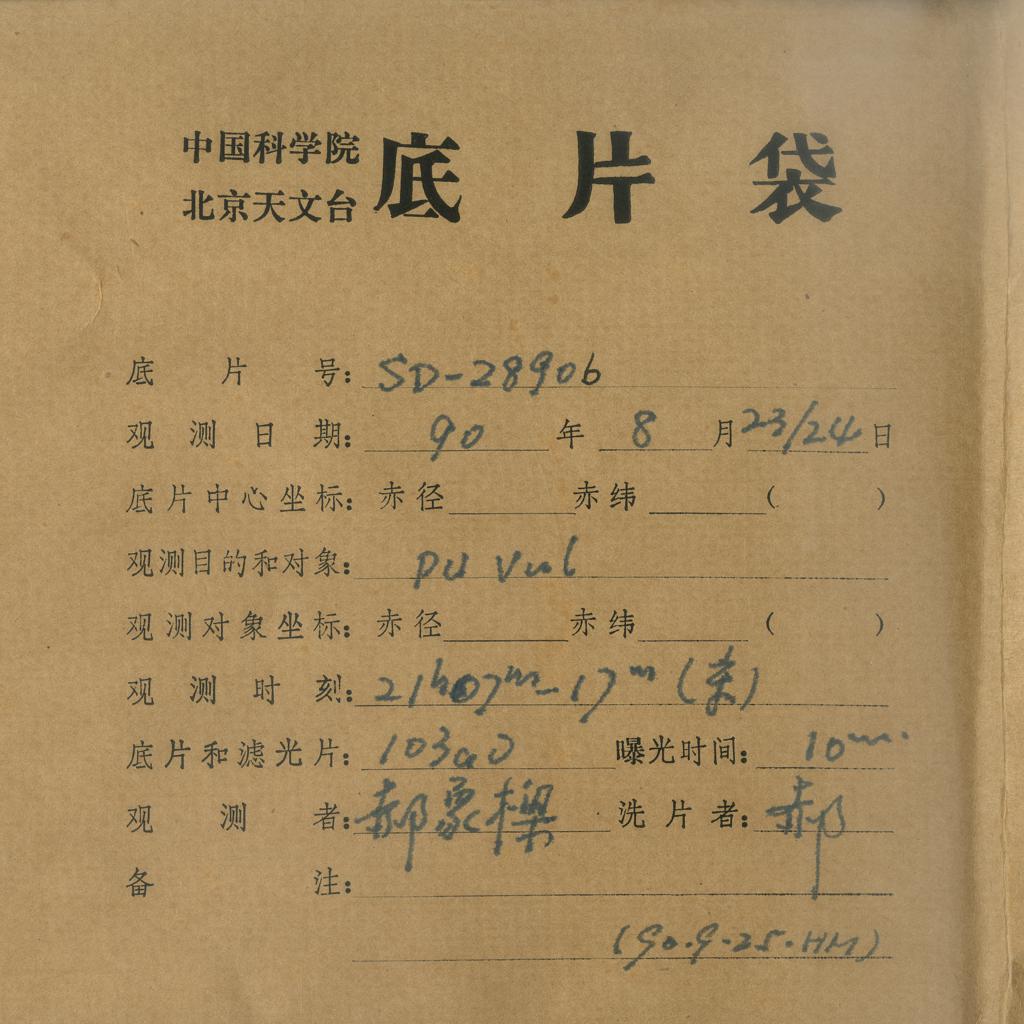 中国科学院
北京天文台 底片袋
底片号: SD-28906
观测日期: 90 年 8 月 23/24 日
底片中心坐标: 赤径 赤纬 ( )
观测目的和对象: PU Vul
观测对象坐标: 赤径 赤纬 ( )
观测时刻: 21h07m-17m (京)
底片和滤光片: 103aO 曝光时间: 10m.
观测者: 郝象樑 洗片者: 郝
备注:
(90.9.25.HM)